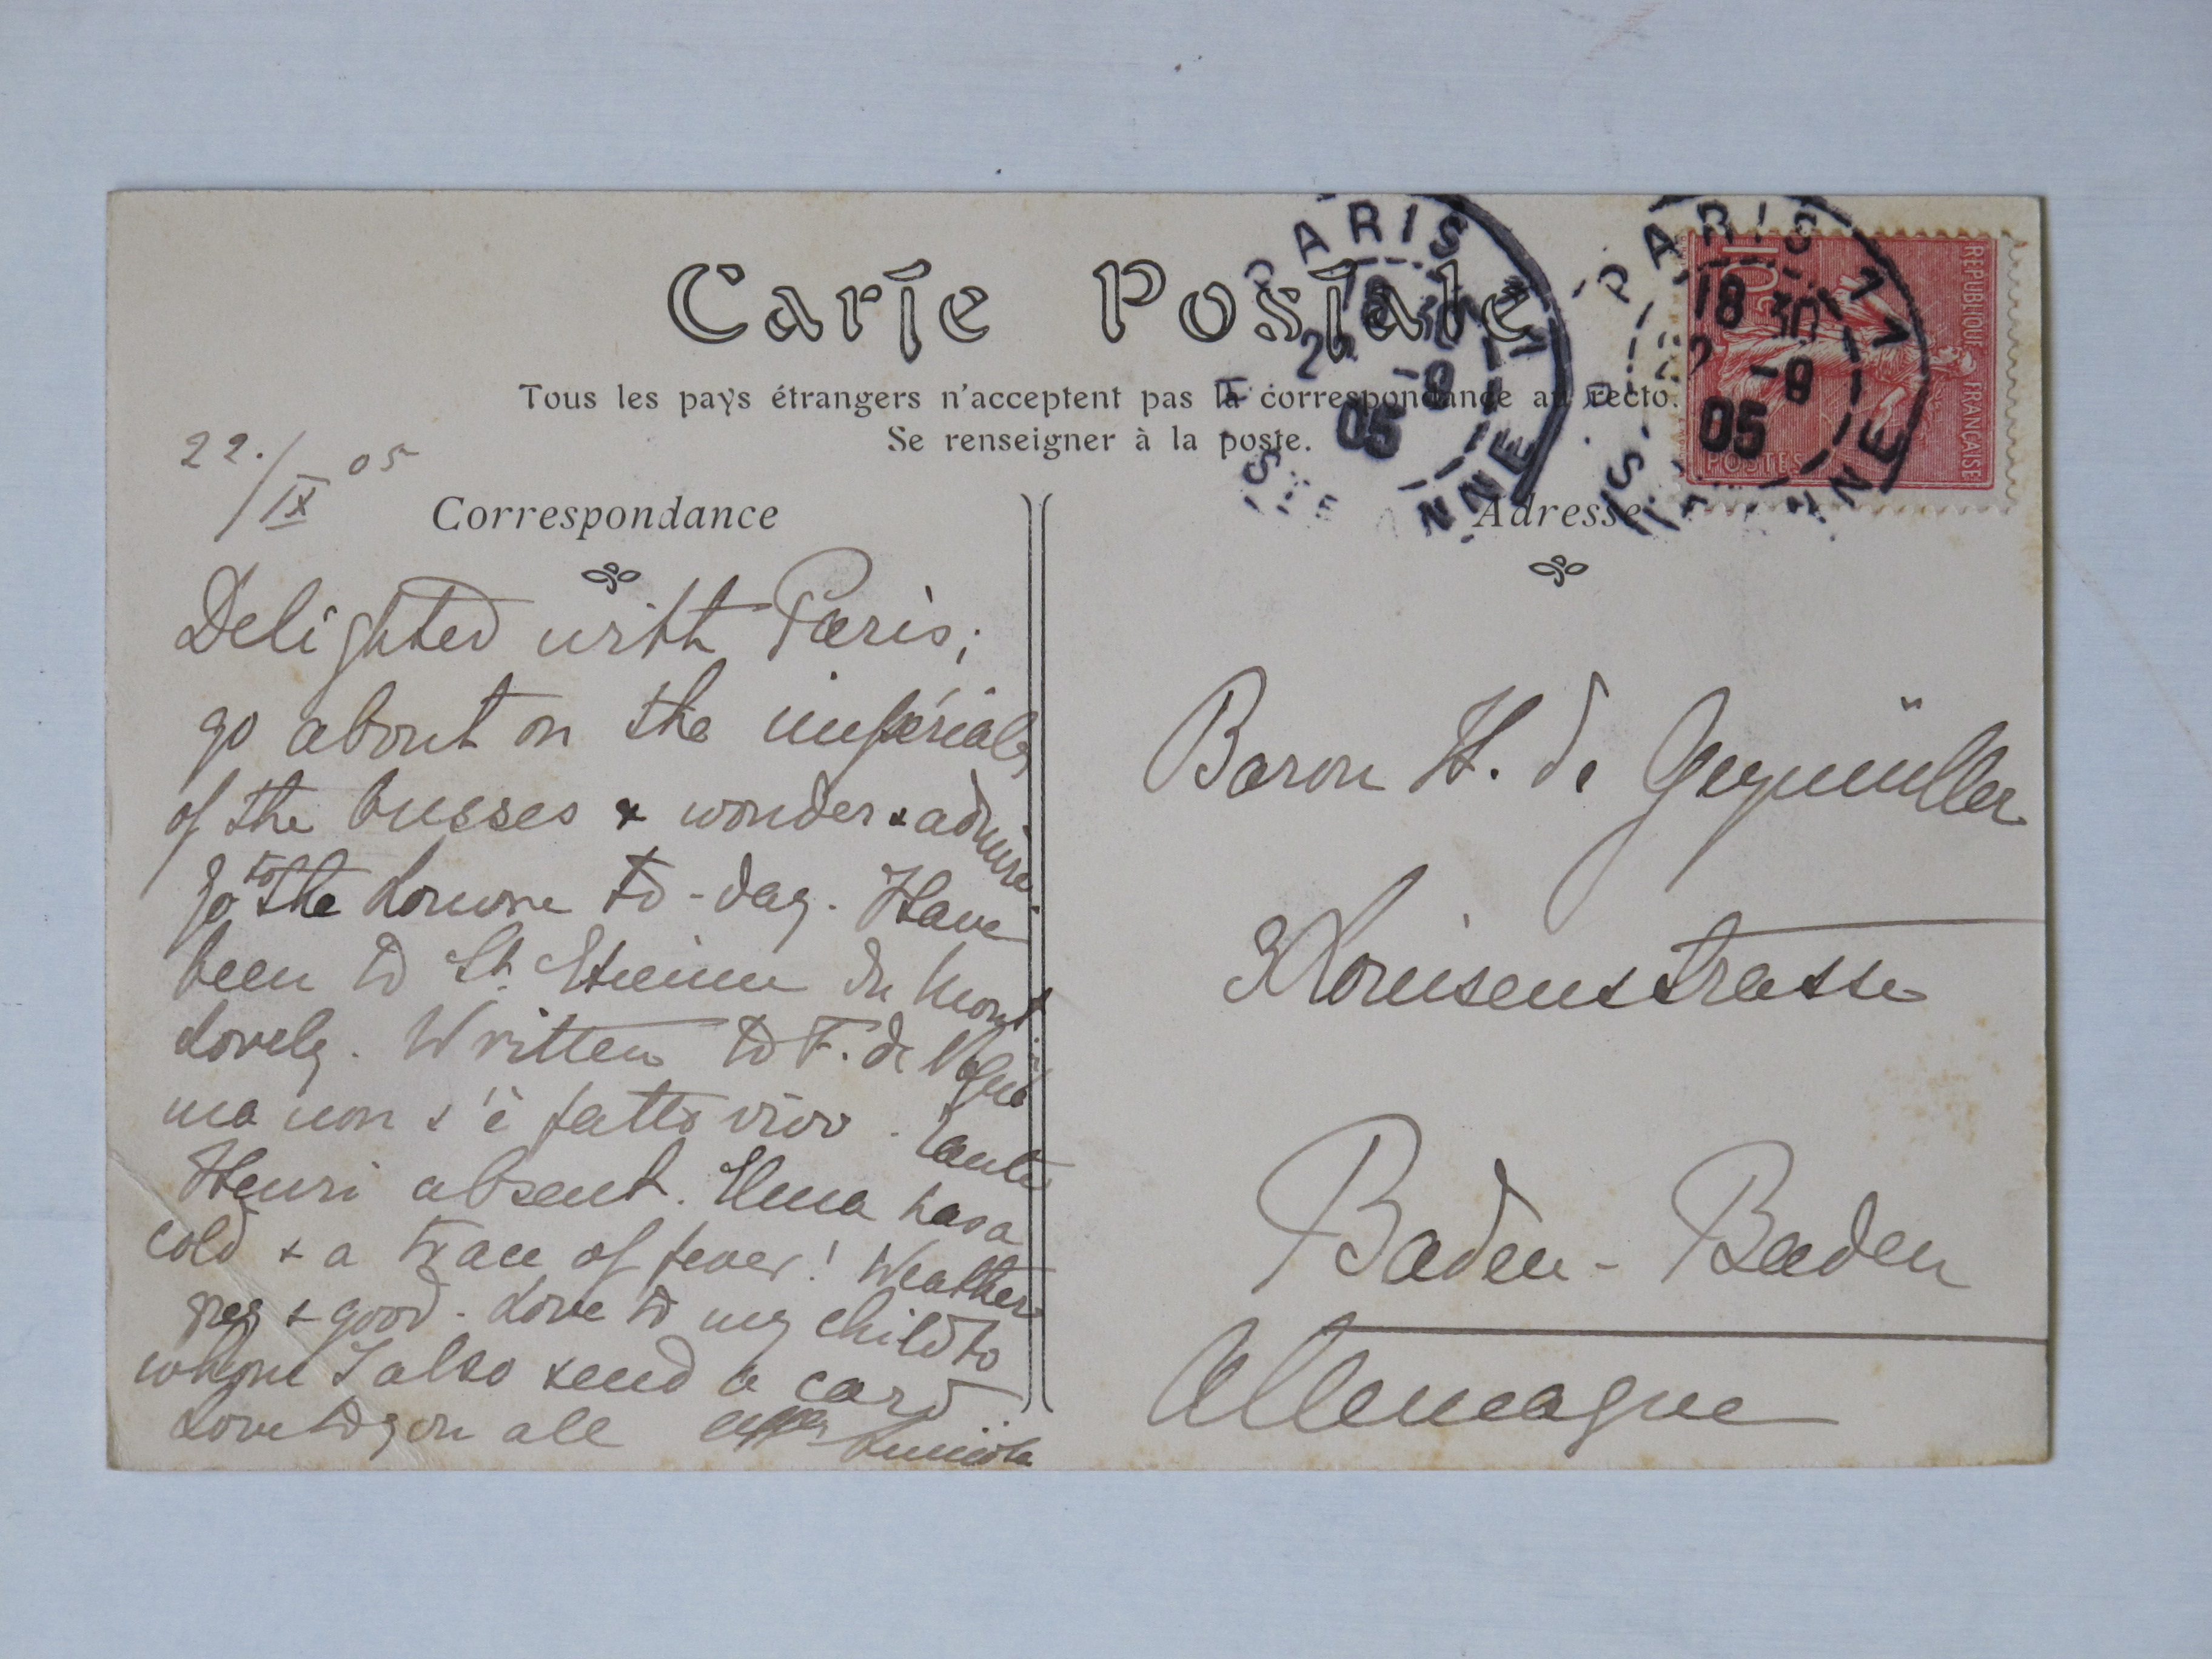 Carte Postale
Tous les pays étrangers n'acceptent pas la correspondance au recto.
Se renseigner à la poste.
PARIS
18 30
2 -9
05
PARIS 11
18 30
22 -9
05
REPUBLIQUE FRANÇAISE
POSTES
10
22./IX 05
Correspondance
Delighted with Paris;
go about on the impérials
of the busses & wonder & admire.
Go to the Louvre to-day. Have
been to St. Etienne du Mont
Lovely. Written to F. de
ma non s'è fatto vivo. Tante
Henri absent. has a
cold & a trace of fever! Weather
grey & good. Love to my child to
whom I also send a card
Love to you all
Adresse
Baron H. de Geymüller
3 Louisenstrasse
Baden-Baden
Allemagne